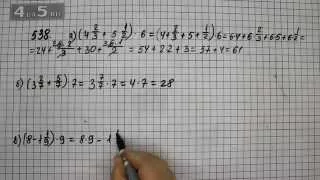 4 5
538. а)(4 2/3 + 5 1/2) · 6 = (4 + 2/3 + 5 + 1/2) · 6 = 6·4 + 6 2/3 + 6·5 + 6 1/2 =
= 24 + 2·6/3 + 30 + 6·1/2 = 54 + 2·2 + 3 = 37 + 4 = 61
б) (3 2/7 + 5/7) · 7 = 3 7/7 · 7 = 4 · 7 = 28
в) (8 - 1 1/9) · 9 = 8·9 - 1